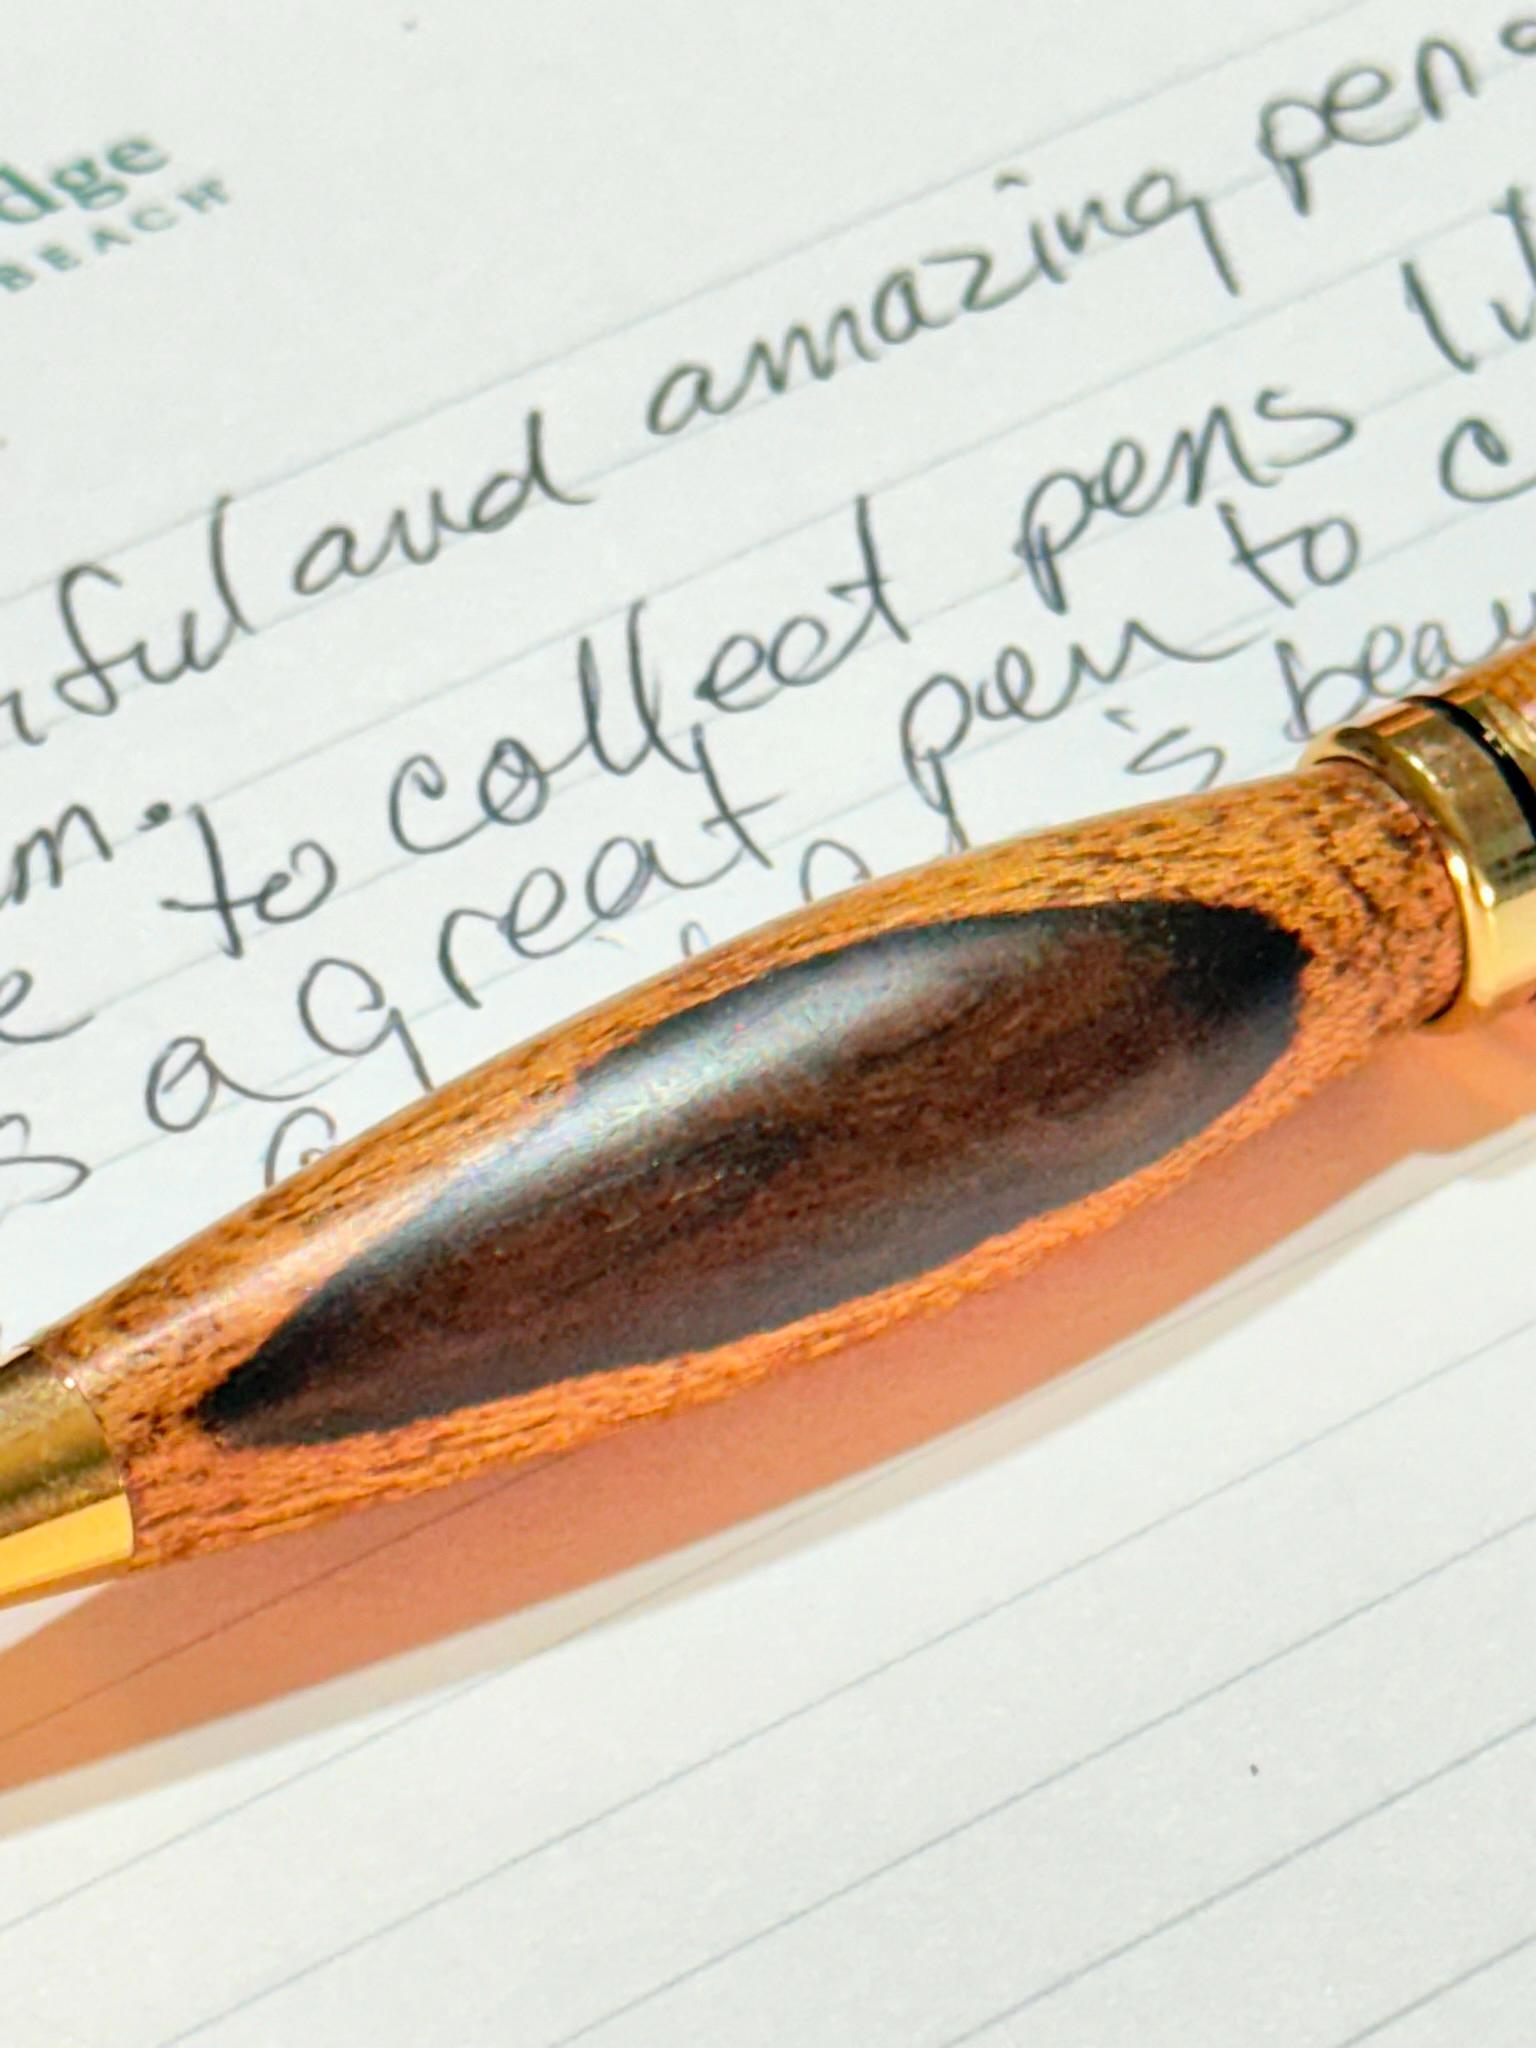 dge
BEACH
rful and amazing pens
m.
to collect pens I
e
s a great pen to c
is beau